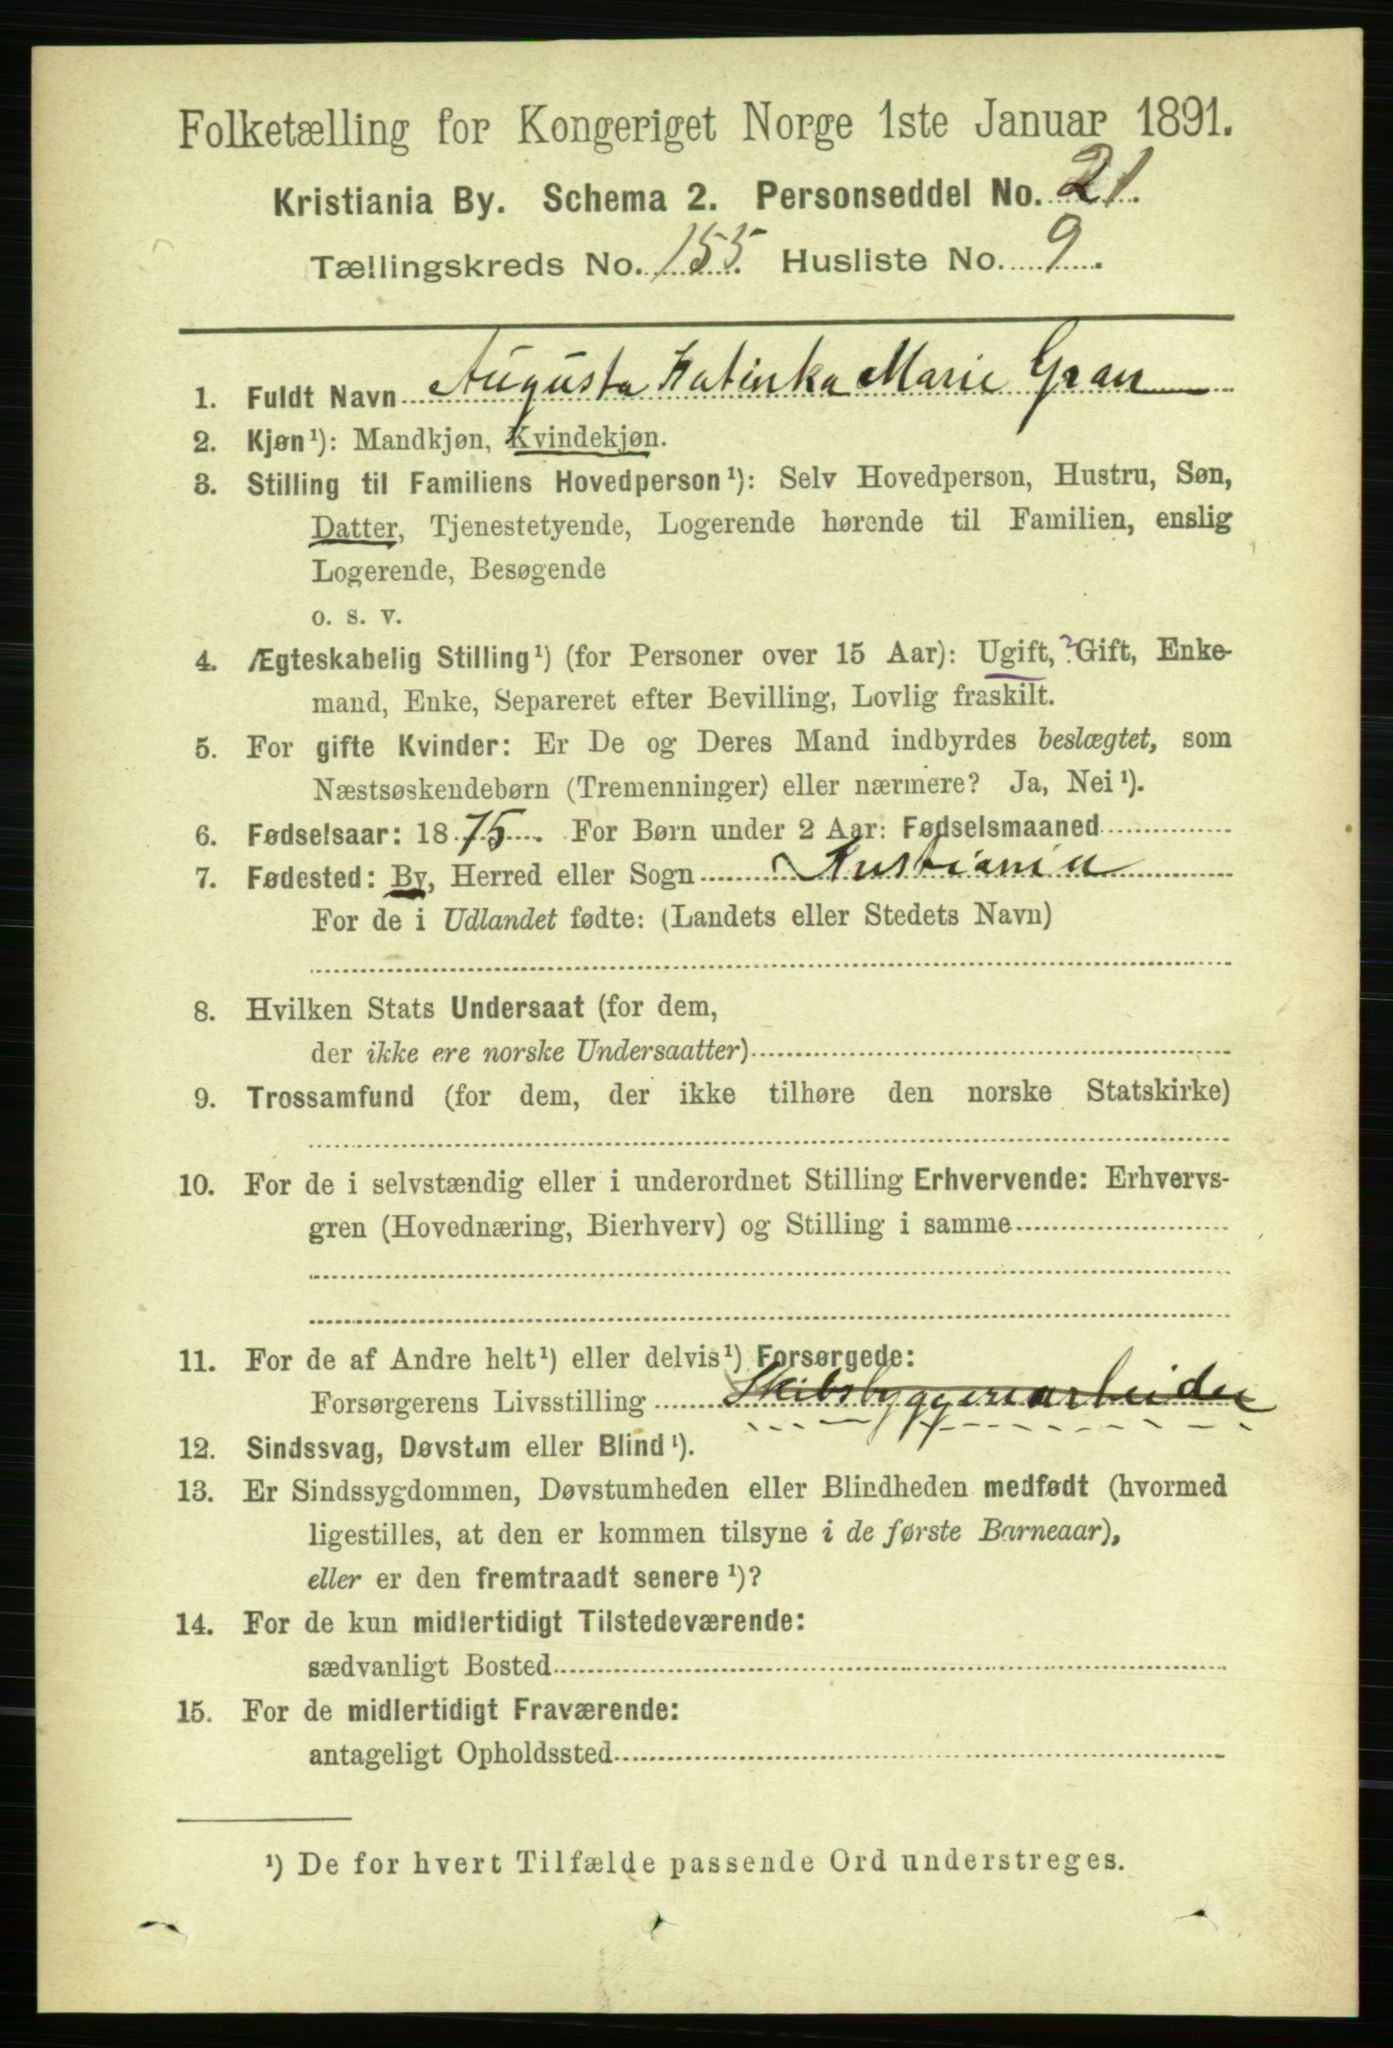 Folketælling for Kongeriget Norge 1ste Januar 1891.
Kristiania By. Schema 2. Personseddel No. 21.
Tællingskreds No. 155. Husliste No. 9.
1. Fuldt Navn Augusta Katinka Marie Gran
2. Kjøn¹): Mandkjøn, Kvindekjøn.
3. Stilling til Familiens Hovedperson¹): Selv Hovedperson, Hustru, Søn,
Datter, Tjenestetyende, Logerende hørende til Familien, enslig
Logerende, Besøgende
o. s. v.
4. Ægteskabelig Stilling¹) (for Personer over 15 Aar): Ugift, ? Gift, Enke-
mand, Enke, Separeret efter Bevilling, Lovlig fraskilt.
5. For gifte Kvinder: Er De og Deres Mand indbyrdes beslægtet, som
Næstsøskendebørn (Tremenninger) eller nærmere? Ja, Nei¹).
6. Fødselsaar: 1875. For Børn under 2 Aar: Fødselsmaaned
7. Fødested: By, Herred eller Sogn Kristiania
For de i Udlandet fødte: (Landets eller Stedets Navn)
8. Hvilken Stats Undersaat (for dem,
der ikke ere norske Undersaatter)
9. Trossamfund (for dem, der ikke tilhøre den norske Statskirke)
10. For de i selvstændig eller i underordnet Stilling Erhvervende: Erhvervs-
gren (Hovednæring, Bierhverv) og Stilling i samme
11. For de af Andre helt¹) eller delvis¹) Forsørgede:
Forsørgerens Livsstilling Skibsbyggeriarbeider
12. Sindssvag, Døvstum eller Blind¹).
13. Er Sindssygdommen, Døvstumheden eller Blindheden medfødt (hvormed
ligestilles, at den er kommen tilsyne i de første Barneaar),
eller er den fremtraadt senere¹)?
14. For de kun midlertidigt Tilstedeværende:
sædvanligt Bosted
15. For de midlertidigt Fraværende:
antageligt Opholdssted
¹) De for hvert Tilfælde passende Ord understreges.